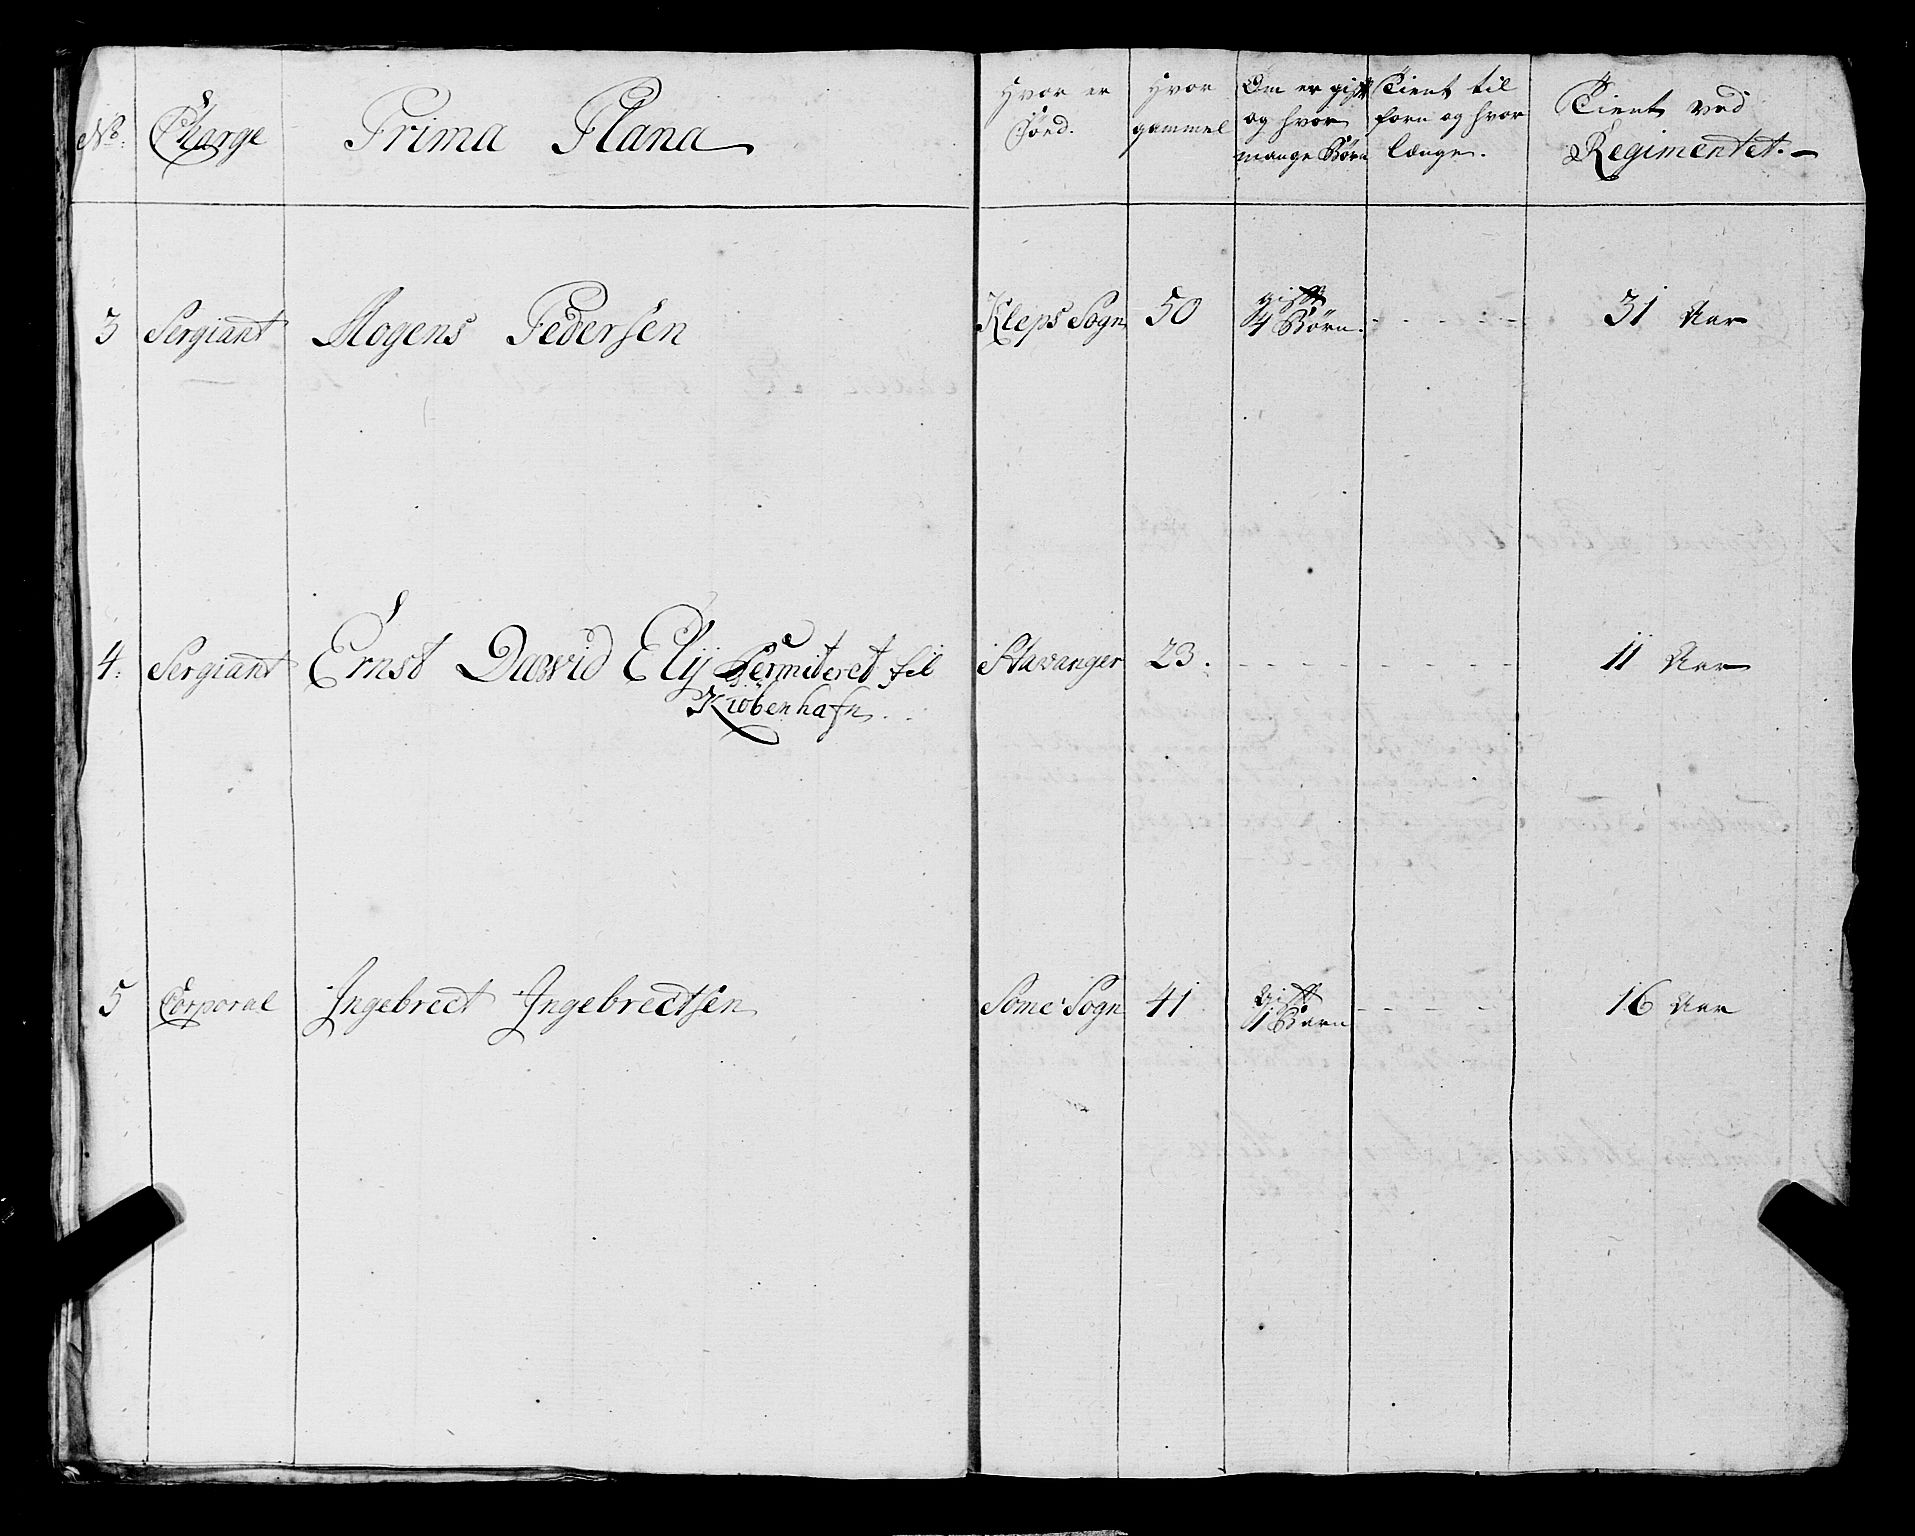 No: Charge Prima Plana Hvor er Föed. Hvor gammel Om er gift og hvor mange Börn Tient til forn og hvor længe. Tient ved Regimentet.
3 Sergiant Mogens Pedersen Kleps Sogn 50 gift 4 Börn. - - - - - 31 Aar
4: Sergiant Ernst Dawid Elÿ Permiteret til Stavanger 23. - - - - - - - - - 11 Aar
Kiöbenhafn.
5 Corporal Ingebrect Ingebrectsen Some Sogn 41 gift 1 Barn - - - - 16 Aar